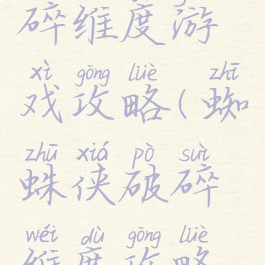 碎维度游
xì gōng lüè zhī
戏攻略(蜘
zhū xiá pò suì
蛛侠破碎
wéi dù gōng lüè
维度攻略